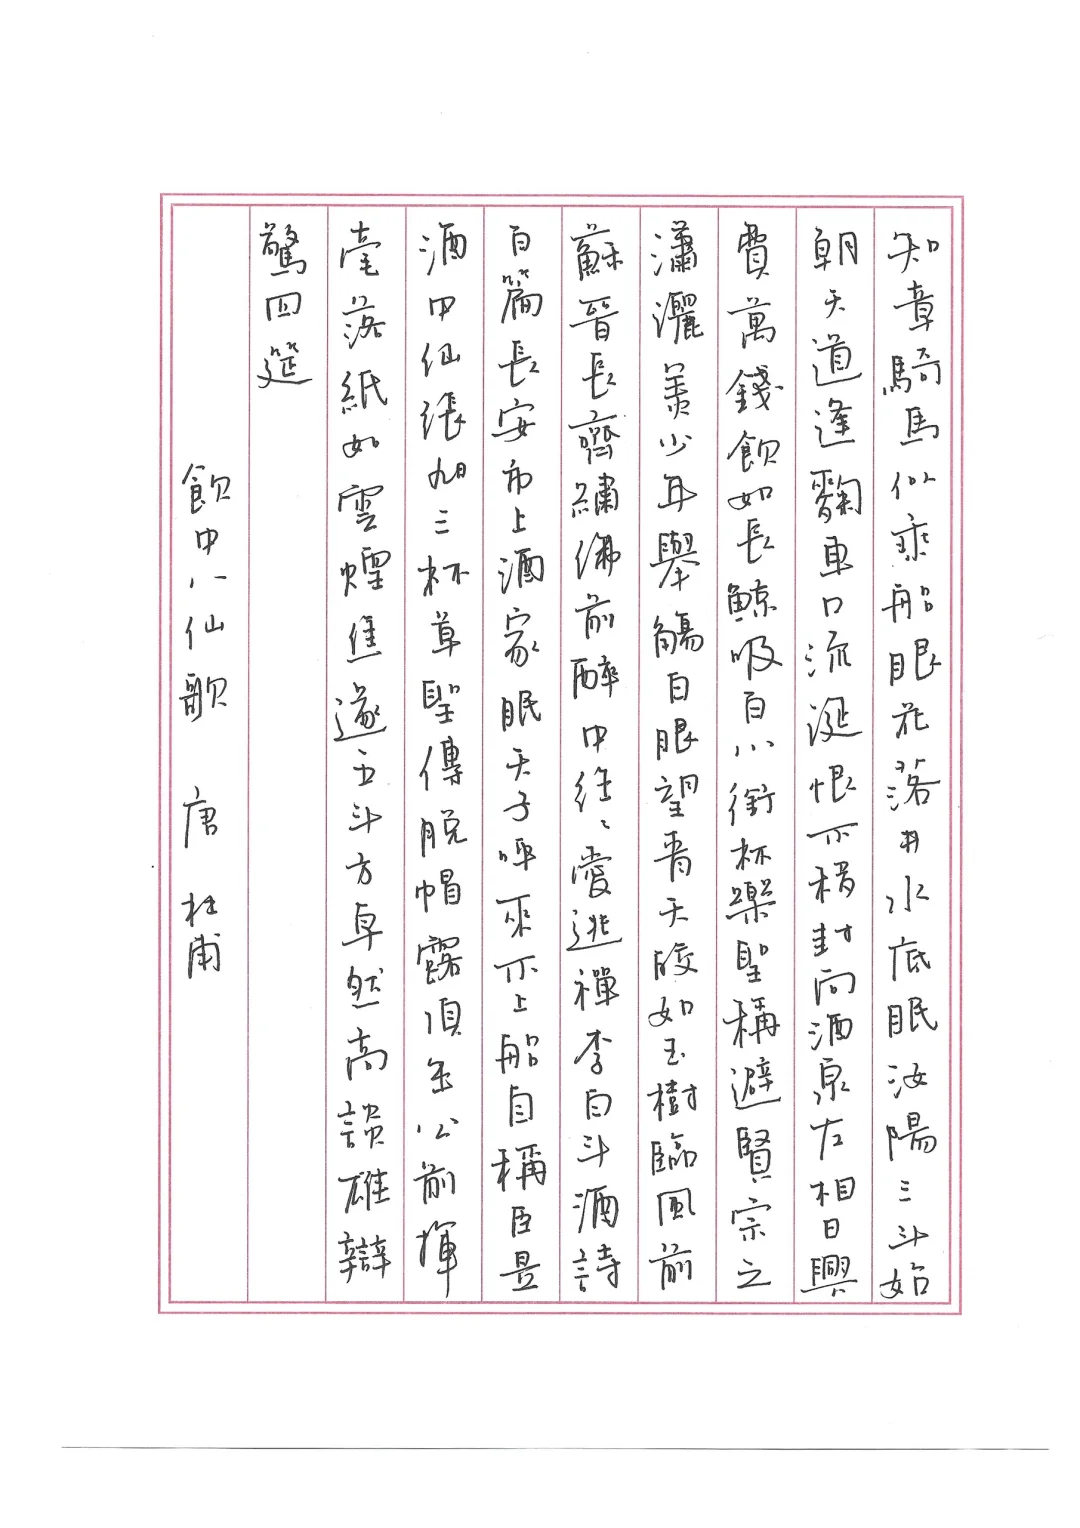 知章騎馬似乘船眼花落井水底眠汝陽三斗始
朝天道逢麴車口流涎恨不移封向酒泉左相日興
費萬錢飲如長鯨吸百川銜杯樂聖稱避賢宗之
瀟灑美少年舉觴白眼望青天皎如玉樹臨風前
蘇晉長齋繡佛前醉中往々愛逃禪李白斗酒詩
百篇長安市上酒家眠天子呼來不上船自稱臣是
酒中仙張旭三杯草聖傳脫帽露頂王公前揮
毫落紙如雲煙焦遂五斗方卓然高談雄辯
驚四筵
飲中八仙歌 唐 杜甫